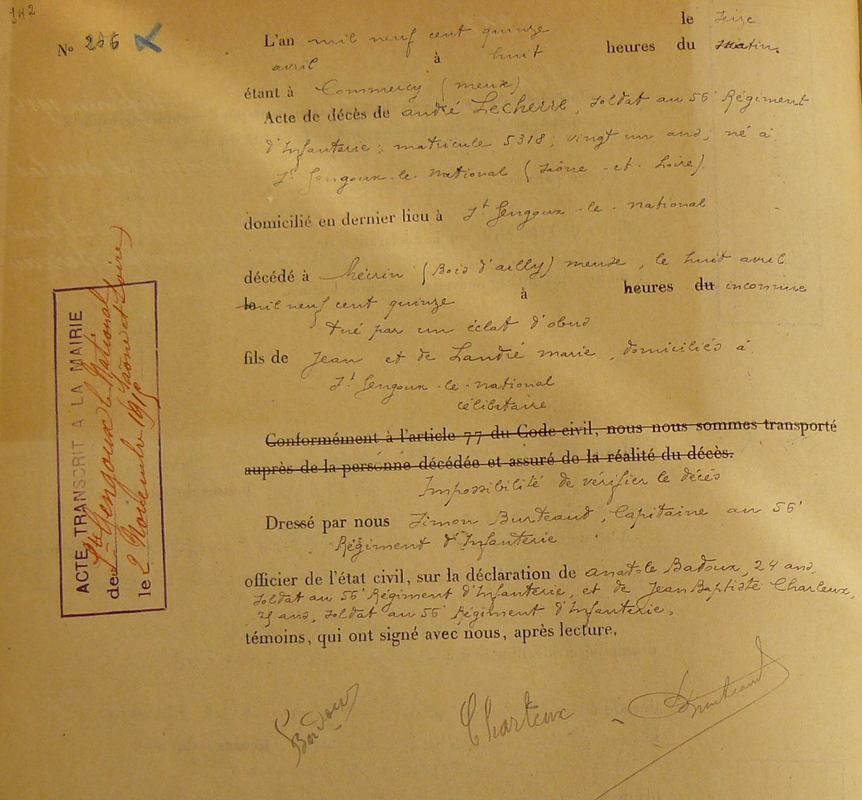 342
N° 256
L'an mil neuf cent quinze le seize
avril à huit heures du matin,
étant à Commercy (meuse)
Acte de décès de andré Lecherre, soldat au 56e Régiment
d'Infanterie; matricule 5318; vingt un ans, né à
St Gengoux-le-national (Saône-et-Loire)
domicilié en dernier lieu à St Gengoux-le-national
décédé à (Bois d'ailly) meuse, le huit avril
le mil neuf cent quinze à heures du inconnue
tué par un éclat d'obus
fils de Jean et de Landré marie, domiciliés à
St Gengoux-le-national
célibataire
Conformément à l'article 77 du Code civil, nous nous sommes transporté
auprès de la personne décédée et assuré de la réalité du décès.
Impossibilité de vérifier le décès
Dressé par nous Simon Burteaud, Capitaine au 56e
Régiment d'Infanterie
officier de l'état civil, sur la déclaration de anatole Badoux, 24 ans,
soldat au 56e Régiment d'Infanterie, et de Jean Baptiste Charleux,
25 ans, soldat au 56e Régiment d'Infanterie,
témoins, qui ont signé avec nous, après lecture.
Badoux Charleux Burteaud
ACTE TRANSCRIT A LA MAIRIE
de St Gengoux le National
(Saône et Loire)
le 2 Novembre 1915